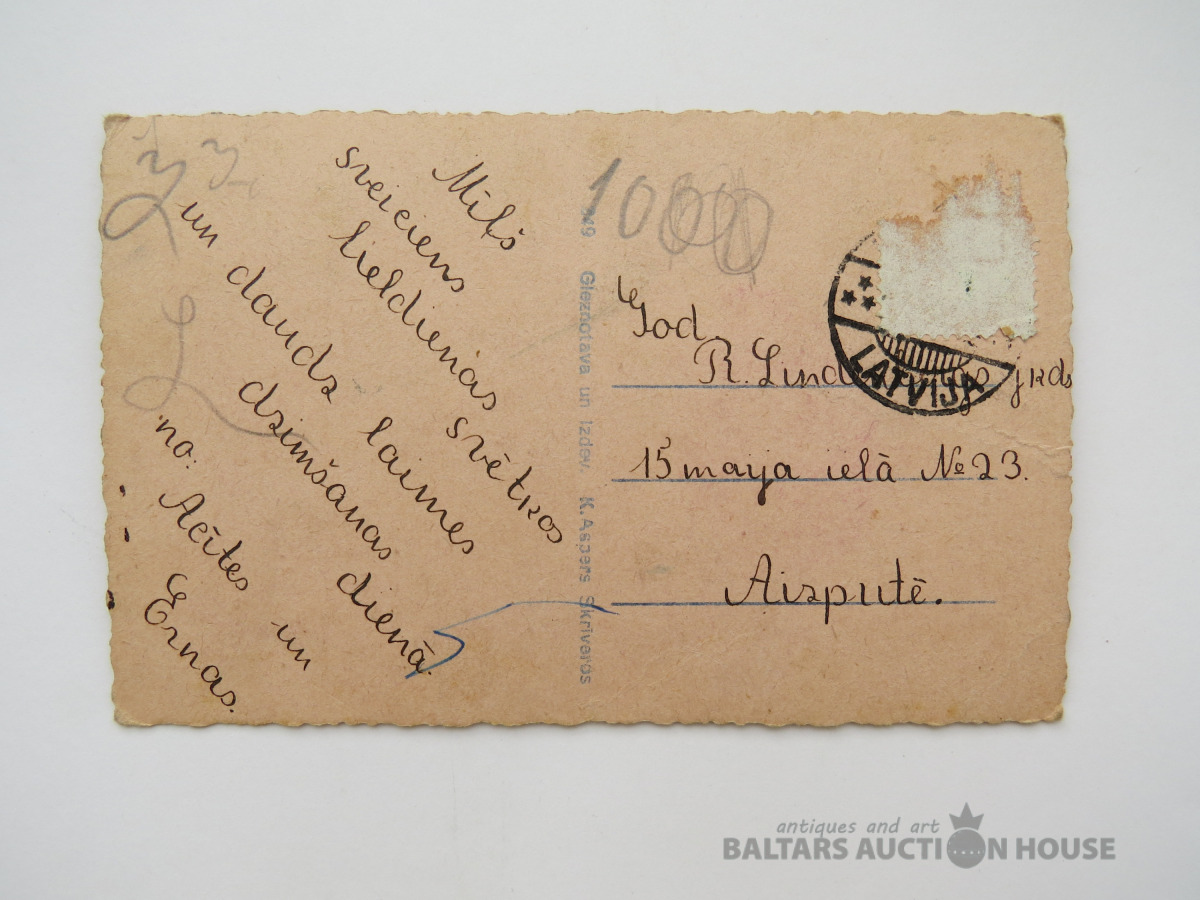 Mīļš
sveiciens
lieldienas svētkos
un daudz laimes
dzimšanas dienā.
no: Acītes un
Ernas.
1000
Glezņotava un Izdev. K. Aspers Skrīveros
God.
R. Lind
15 maija ielā № 23.
Aizputē.
LATVIJA
antiques and art
BALTARS AUCTION HOUSE